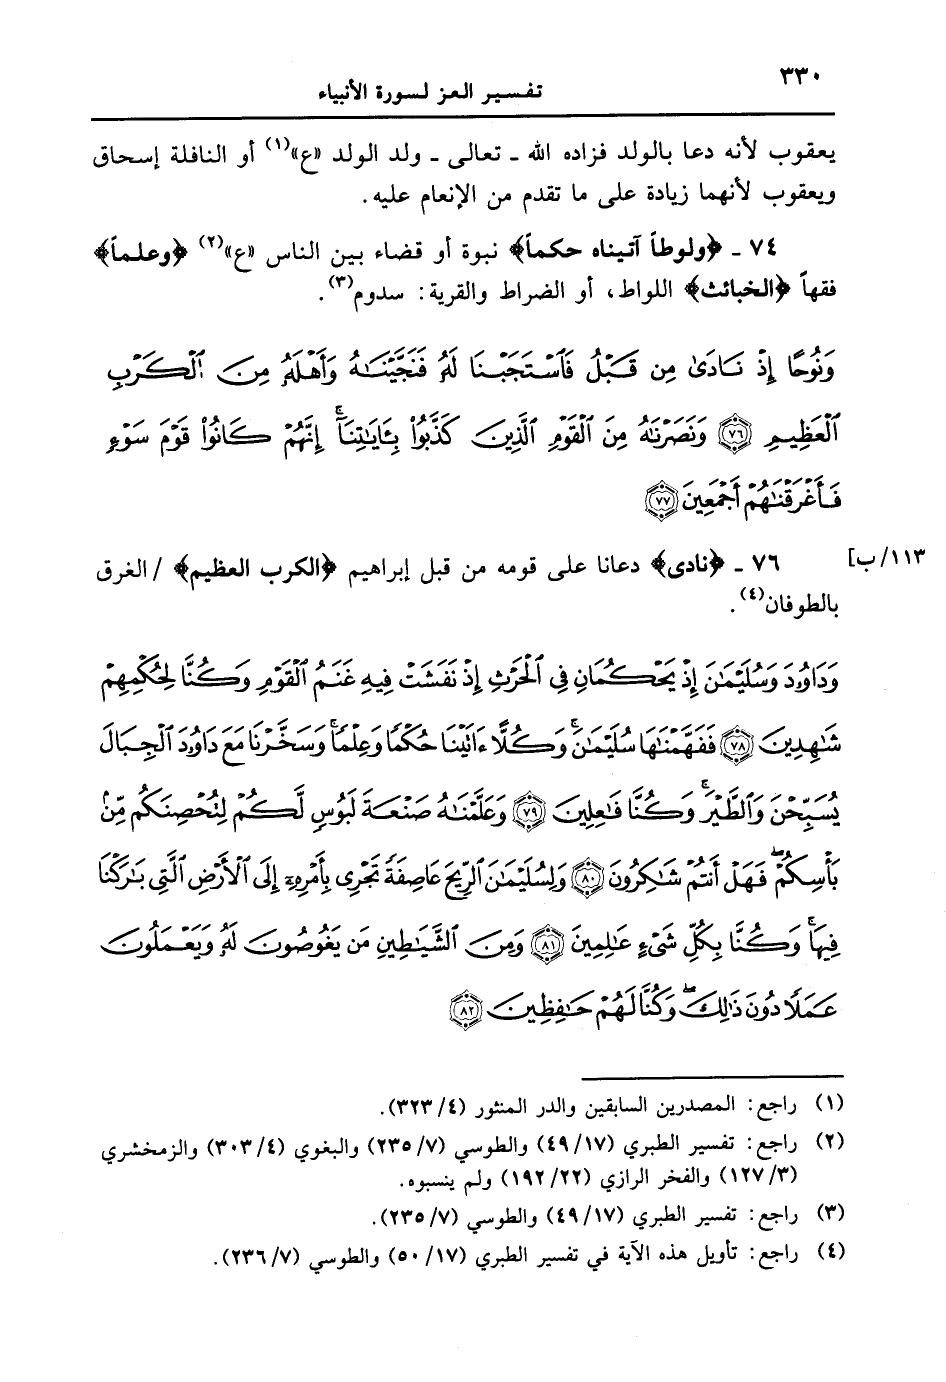 ٣٣٠
تفسير العز لسورة الأنبياء
يعقوب لأنه دعا بالولد فزاده الله ـ تعالى ـ ولد الولد «ع»(١) أو النافلة إسحاق
ويعقوب لأنهما زيادة على ما تقدم من الإنعام عليه.
٧٤ ـ ﴿ولوطاً آتيناه حكماً﴾ نبوة أو قضاء بين الناس «ع»(٢) ﴿وعلماً﴾
فقهاً ﴿الخبائث﴾ اللواط، أو الضراط والقرية: سدوم(٣).
وَنُوحًا إِذْ نَادَىٰ مِن قَبْلُ فَٱسْتَجَبْنَا لَهُۥ فَنَجَّيْنَـٰهُ وَأَهْلَهُۥ مِنَ ٱلْكَرْبِ
ٱلْعَظِيمِ ﴿٧٦﴾ وَنَصَرْنَـٰهُ مِنَ ٱلْقَوْمِ ٱلَّذِينَ كَذَّبُوا۟ بِـَٔايَـٰتِنَآ ۚ إِنَّهُمْ كَانُوا۟ قَوْمَ سَوْءٍ
فَأَغْرَقْنَـٰهُمْ أَجْمَعِينَ ﴿٧٧﴾
٧٦ ـ ﴿نادى﴾ دعانا على قومه من قبل إبراهيم ﴿الكرب العظيم﴾ /الغرق [١١٣/ب]
بالطوفان(٤).
وَدَاوُۥدَ وَسُلَيْمَـٰنَ إِذْ يَحْكُمَانِ فِى ٱلْحَرْثِ إِذْ نَفَشَتْ فِيهِ غَنَمُ ٱلْقَوْمِ وَكُنَّا لِحُكْمِهِمْ
شَـٰهِدِينَ ﴿٧٨﴾ فَفَهَّمْنَـٰهَا سُلَيْمَـٰنَ ۚ وَكُلًّا ءَاتَيْنَا حُكْمًا وَعِلْمًا ۚ وَسَخَّرْنَا مَعَ دَاوُۥدَ ٱلْجِبَالَ
يُسَبِّحْنَ وَٱلطَّيْرَ ۚ وَكُنَّا فَـٰعِلِينَ ﴿٧٩﴾ وَعَلَّمْنَـٰهُ صَنْعَةَ لَبُوسٍ لَّكُمْ لِتُحْصِنَكُم مِّنۢ
بَأْسِكُمْ ۖ فَهَلْ أَنتُمْ شَـٰكِرُونَ ﴿٨٠﴾ وَلِسُلَيْمَـٰنَ ٱلرِّيحَ عَاصِفَةً تَجْرِى بِأَمْرِهِۦٓ إِلَى ٱلْأَرْضِ ٱلَّتِى بَـٰرَكْنَا
فِيهَا ۚ وَكُنَّا بِكُلِّ شَىْءٍ عَـٰلِمِينَ ﴿٨١﴾ وَمِنَ ٱلشَّيَـٰطِينِ مَن يَغُوصُونَ لَهُۥ وَيَعْمَلُونَ
عَمَلًا دُونَ ذَٰلِكَ ۖ وَكُنَّا لَهُمْ حَـٰفِظِينَ ﴿٨٢﴾
(١) راجع: المصدرين السابقين والدر المنثور (٣٢٣/٤).
(٢) راجع: تفسير الطبري (٤٩/١٧) والطوسي (٢٣٥/٧) والبغوي (٣٠٣/٤) والزمخشري
(١٢٧/٣) والفخر الرازي (١٩٢/٢٢) ولم ينسبوه.
(٣) راجع: تفسير الطبري (٤٩/١٧) والطوسي (٢٣٥/٧).
(٤) راجع: تأويل هذه الآية في تفسير الطبري (٥٠/١٧) والطوسي (٢٣٦/٧).